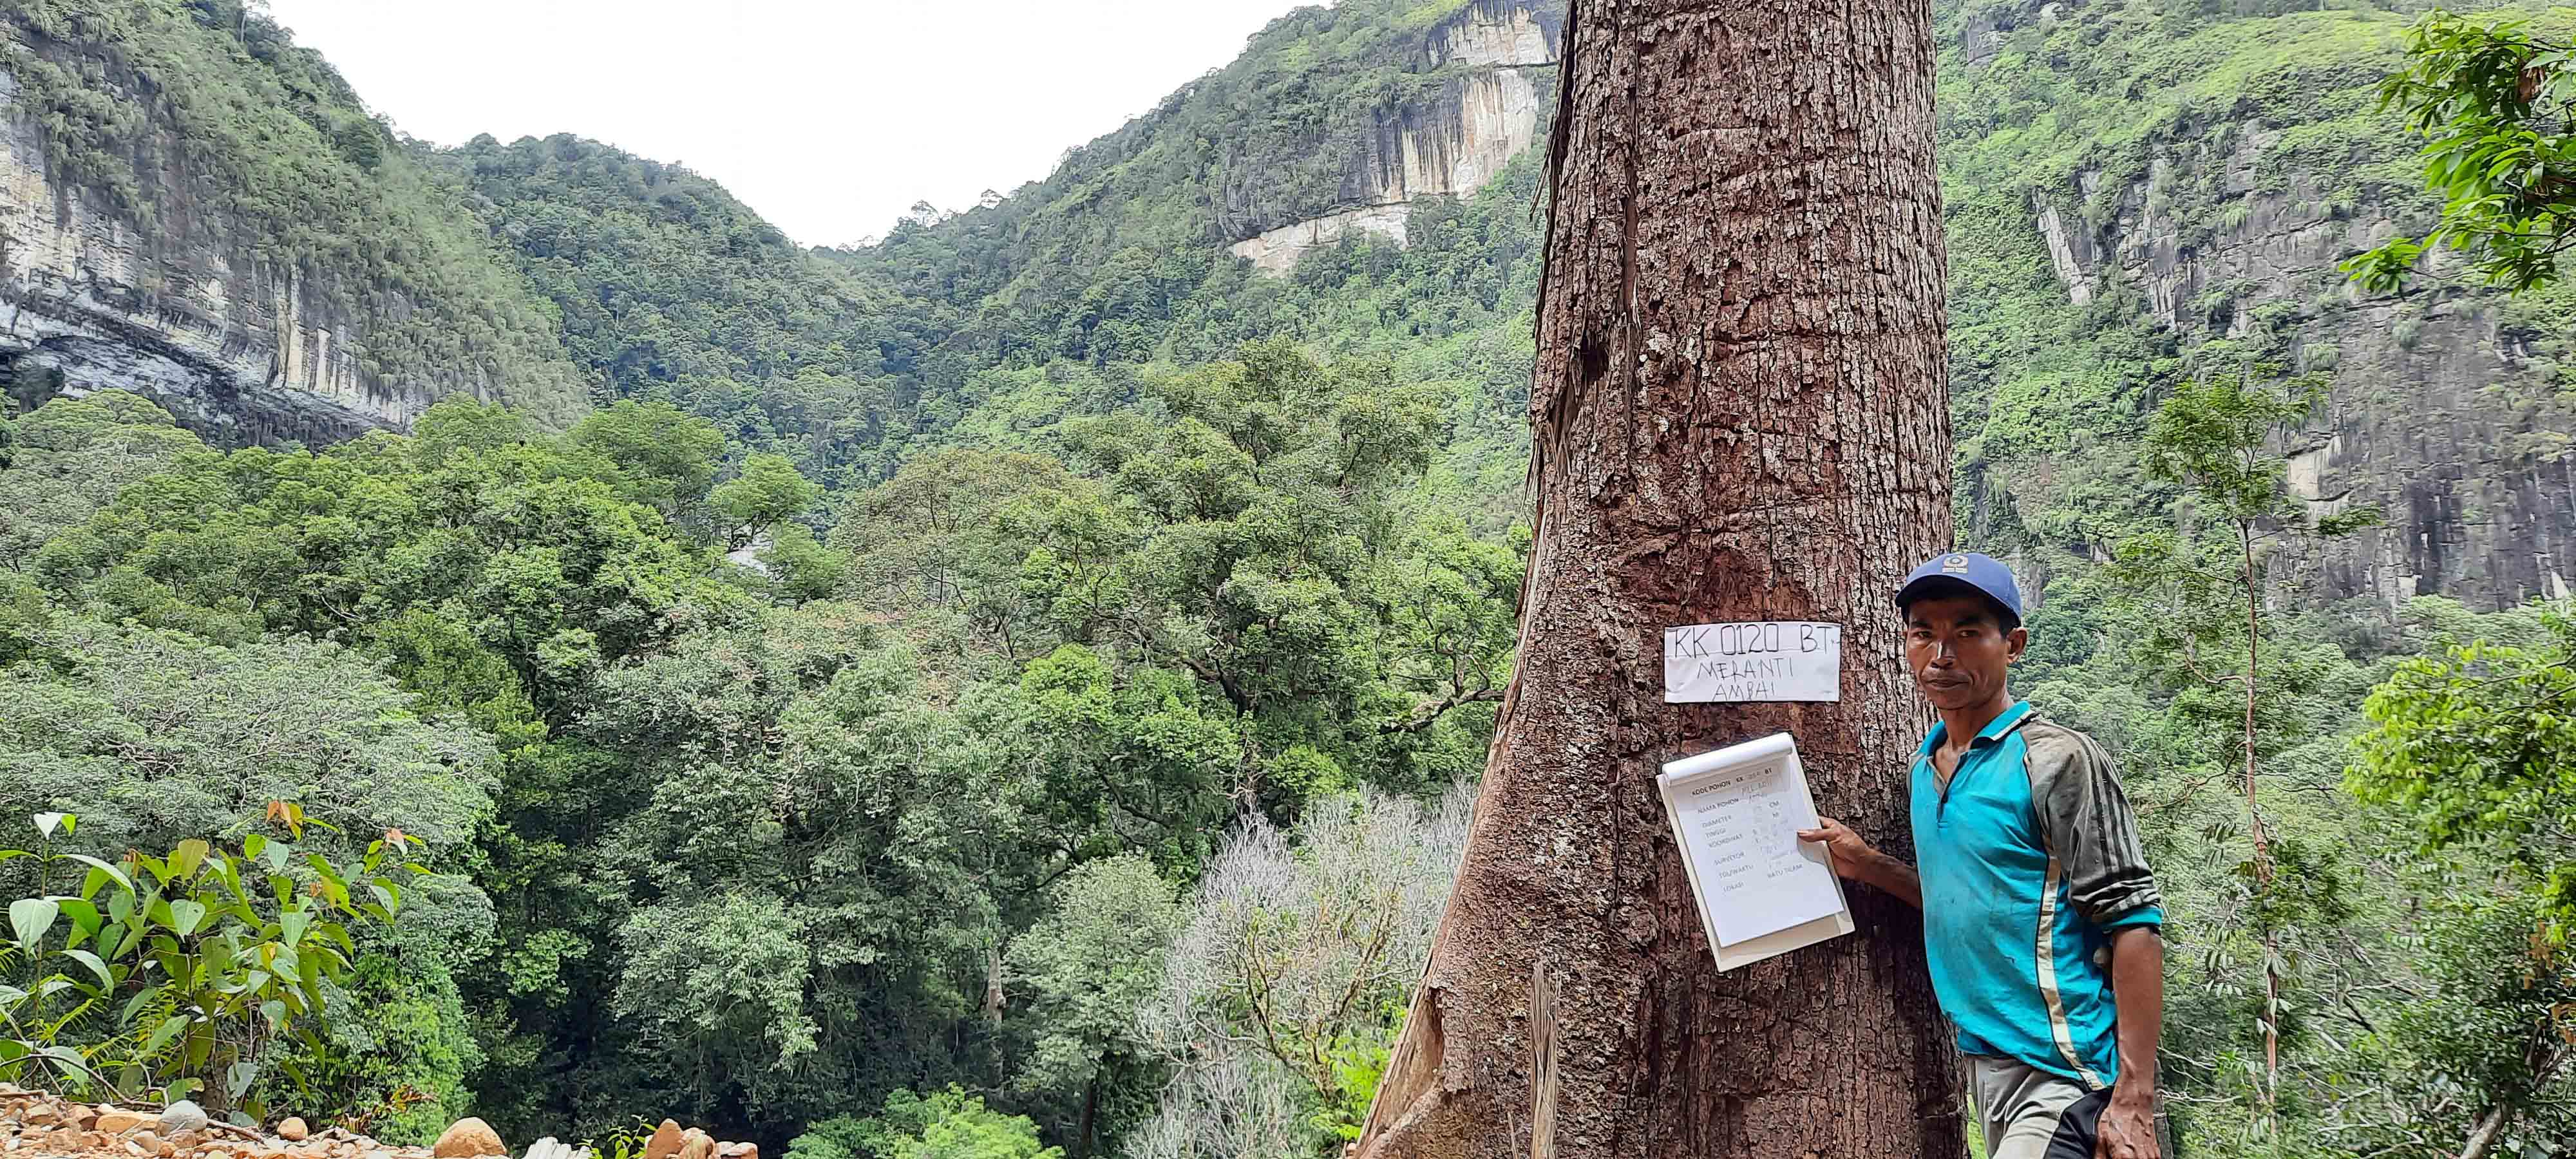 KK 0120 BT
MERANTI
AMBAI
KODE POHON KK BT
NAMA POHON
DIAMETER CM
TINGGI M
KOORDINAT
SURVEYOR
TGL/WAKTU
LOKASI